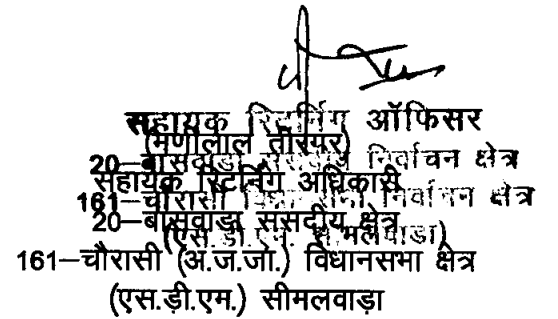 सहायक रिटर्निंग ऑफिसर
(मणीलाल तीरगर)
20–बांसवाडा संसदीय निर्वाचन क्षेत्र
सहायक रिटर्निंग अधिकारी
161–चौरासी विधानसभा निर्वाचन क्षेत्र
20–बांसवाडा संसदीय क्षेत्र
(एस.डी.एम. सीमलवाडा)
161–चौरासी (अ.ज.जा.) विधानसभा क्षेत्र
(एस.ड़ी.एम.) सीमलवाड़ा